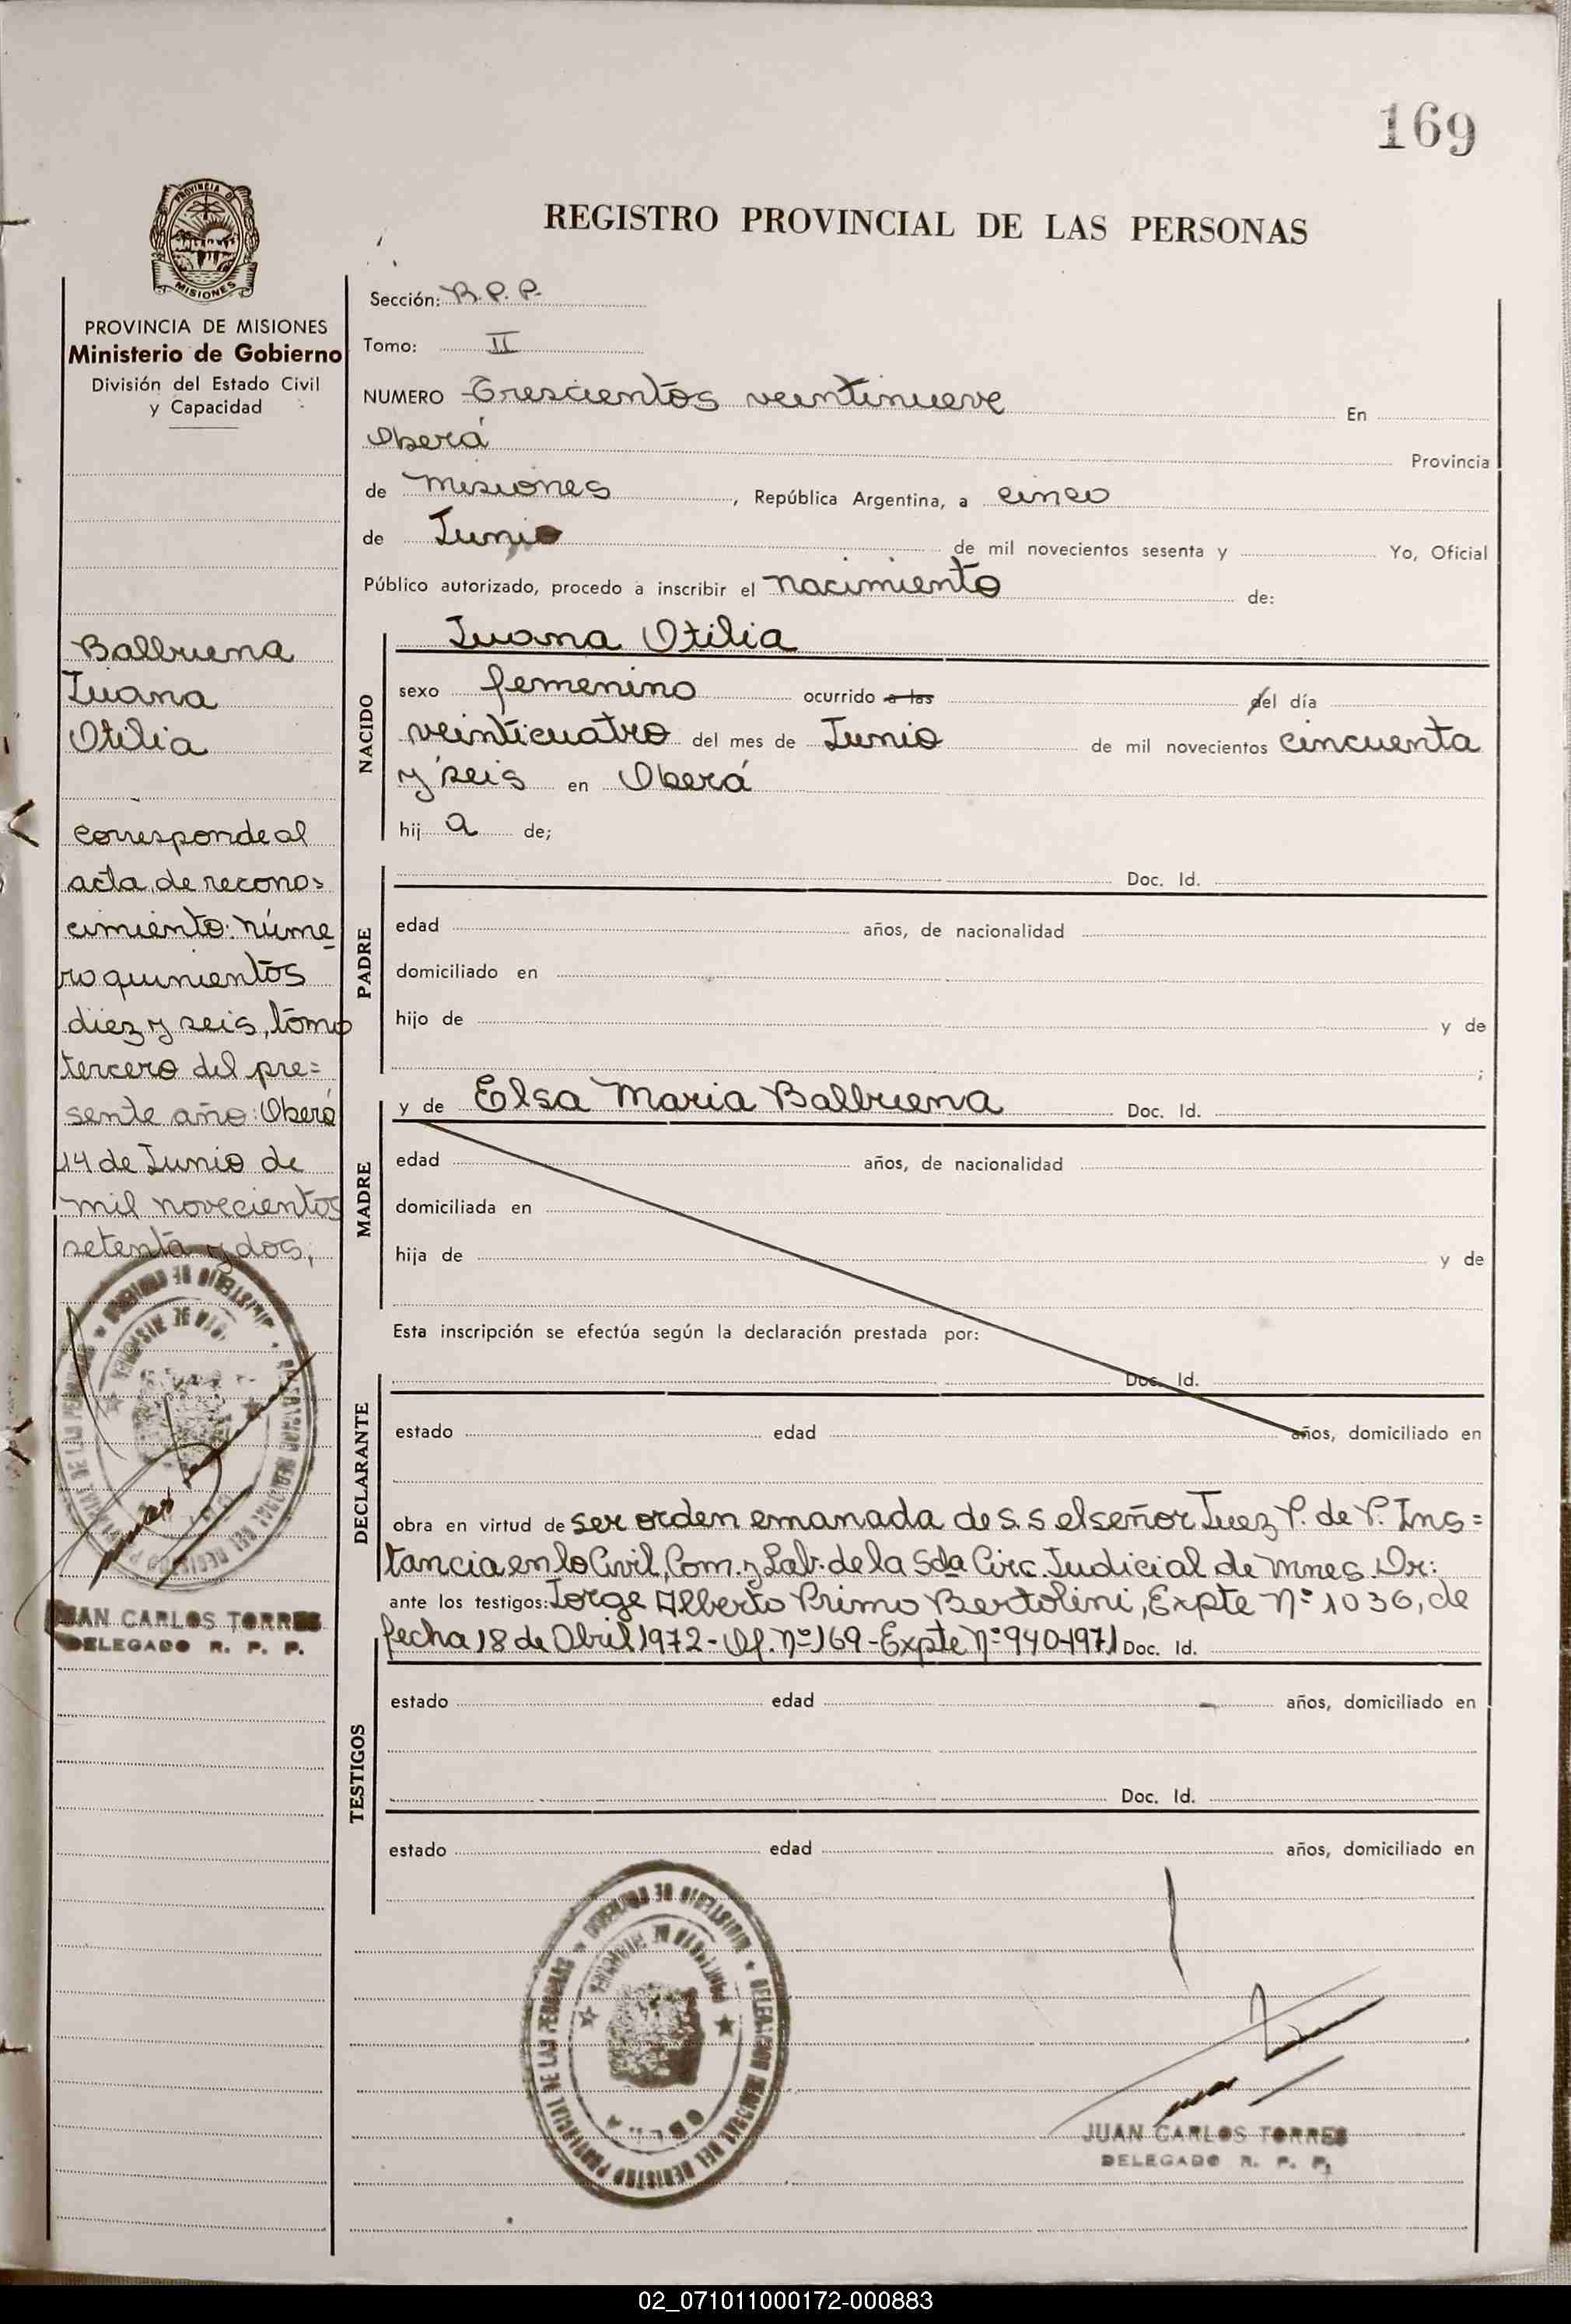 169
REGISTRO PROVINCIAL DE LAS PERSONAS
PROVINCIA DE MISIONES
Ministerio de Gobierno
División del Estado Civil
y Capacidad
Balbuena
Juana
Otilia
corresponde al
acta de recono=
cimiento: núme
ro quinientos
diez y seis, tomo
tercero del pre=
sente año: Oberá
14 de Junio de
mil novecientos
setenta y dos,
JUAN CARLOS TORRES
DELEGADO R. P. P.
Sección: R. P. P.
Tomo: II
NUMERO Trescientos veintinueve En
Oberá Provincia
de Misiones, República Argentina, a cinco
de Junio de mil novecientos sesenta y Yo, Oficial
Público autorizado, procedo a inscribir el nacimiento de:
NACIDO
Juana Otilia
sexo femenino ocurrido a las del día
veinticuatro del mes de Junio de mil novecientos cincuenta
y seis en Oberá
hij a de;
PADRE
Doc. Id.
edad años, de nacionalidad
domiciliado en
hijo de y de
;
MADRE
y de Elsa Maria Balbuena Doc. Id.
edad años, de nacionalidad
domiciliada en
hija de y de
Esta inscripción se efectúa según la declaración prestada por:
DECLARANTE
Doc. Id.
estado edad años, domiciliado en
obra en virtud de ser orden emanada de S.S el señor Juez P. de P. Ins=
tancia en lo Civil, Com. y Lab. de la Sda Circ. Judicial de Mnes. Dr:
ante los testigos: Jorge Alberto Primo Bertolini, Expte Nº 1036, de
fecha 18 de Abril 1972 - Of. Nº 169 - Expte Nº 940-1971 Doc. Id.
TESTIGOS
estado edad años, domiciliado en
Doc. Id.
estado edad años, domiciliado en
JUAN CARLOS TORRES
DELEGADO R. P. P.
02_071011000172-000883